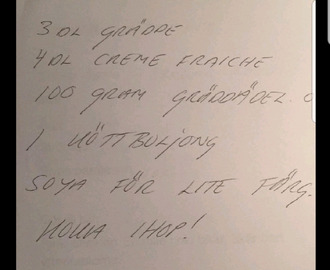 3 DL GRÄDDE
4 DL CREME FRAICHE
100 GRAM GRÄDDÄDEL.
1 KÖTTBULJONG
SOYA FÖR LITE FÄRG.
KOKA IHOP!